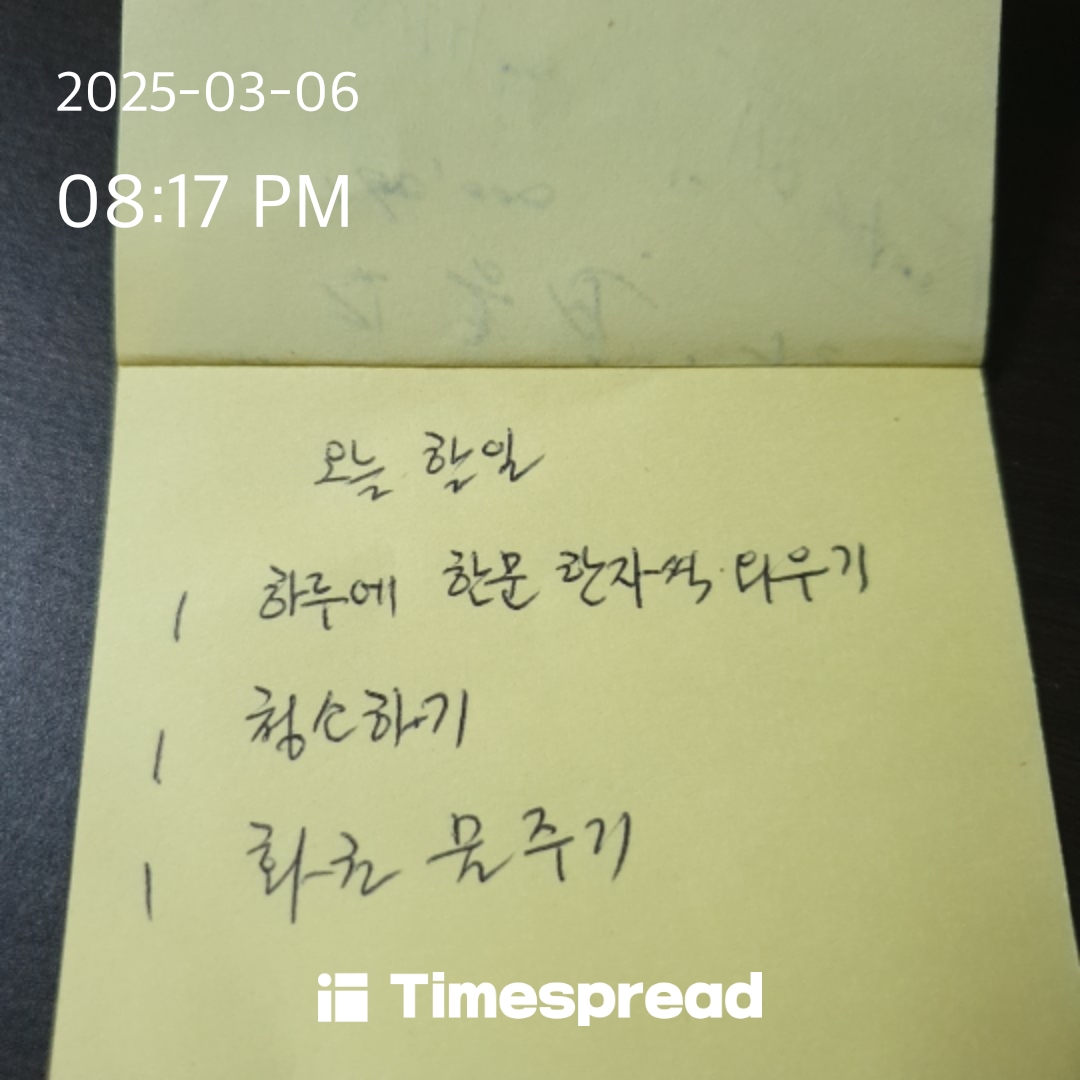 2025-03-06
08:17 PM
오늘 할일
/ 하루에 한문 한자씩 외우기
/ 청소하기
/ 화초 물 주기
Timespread